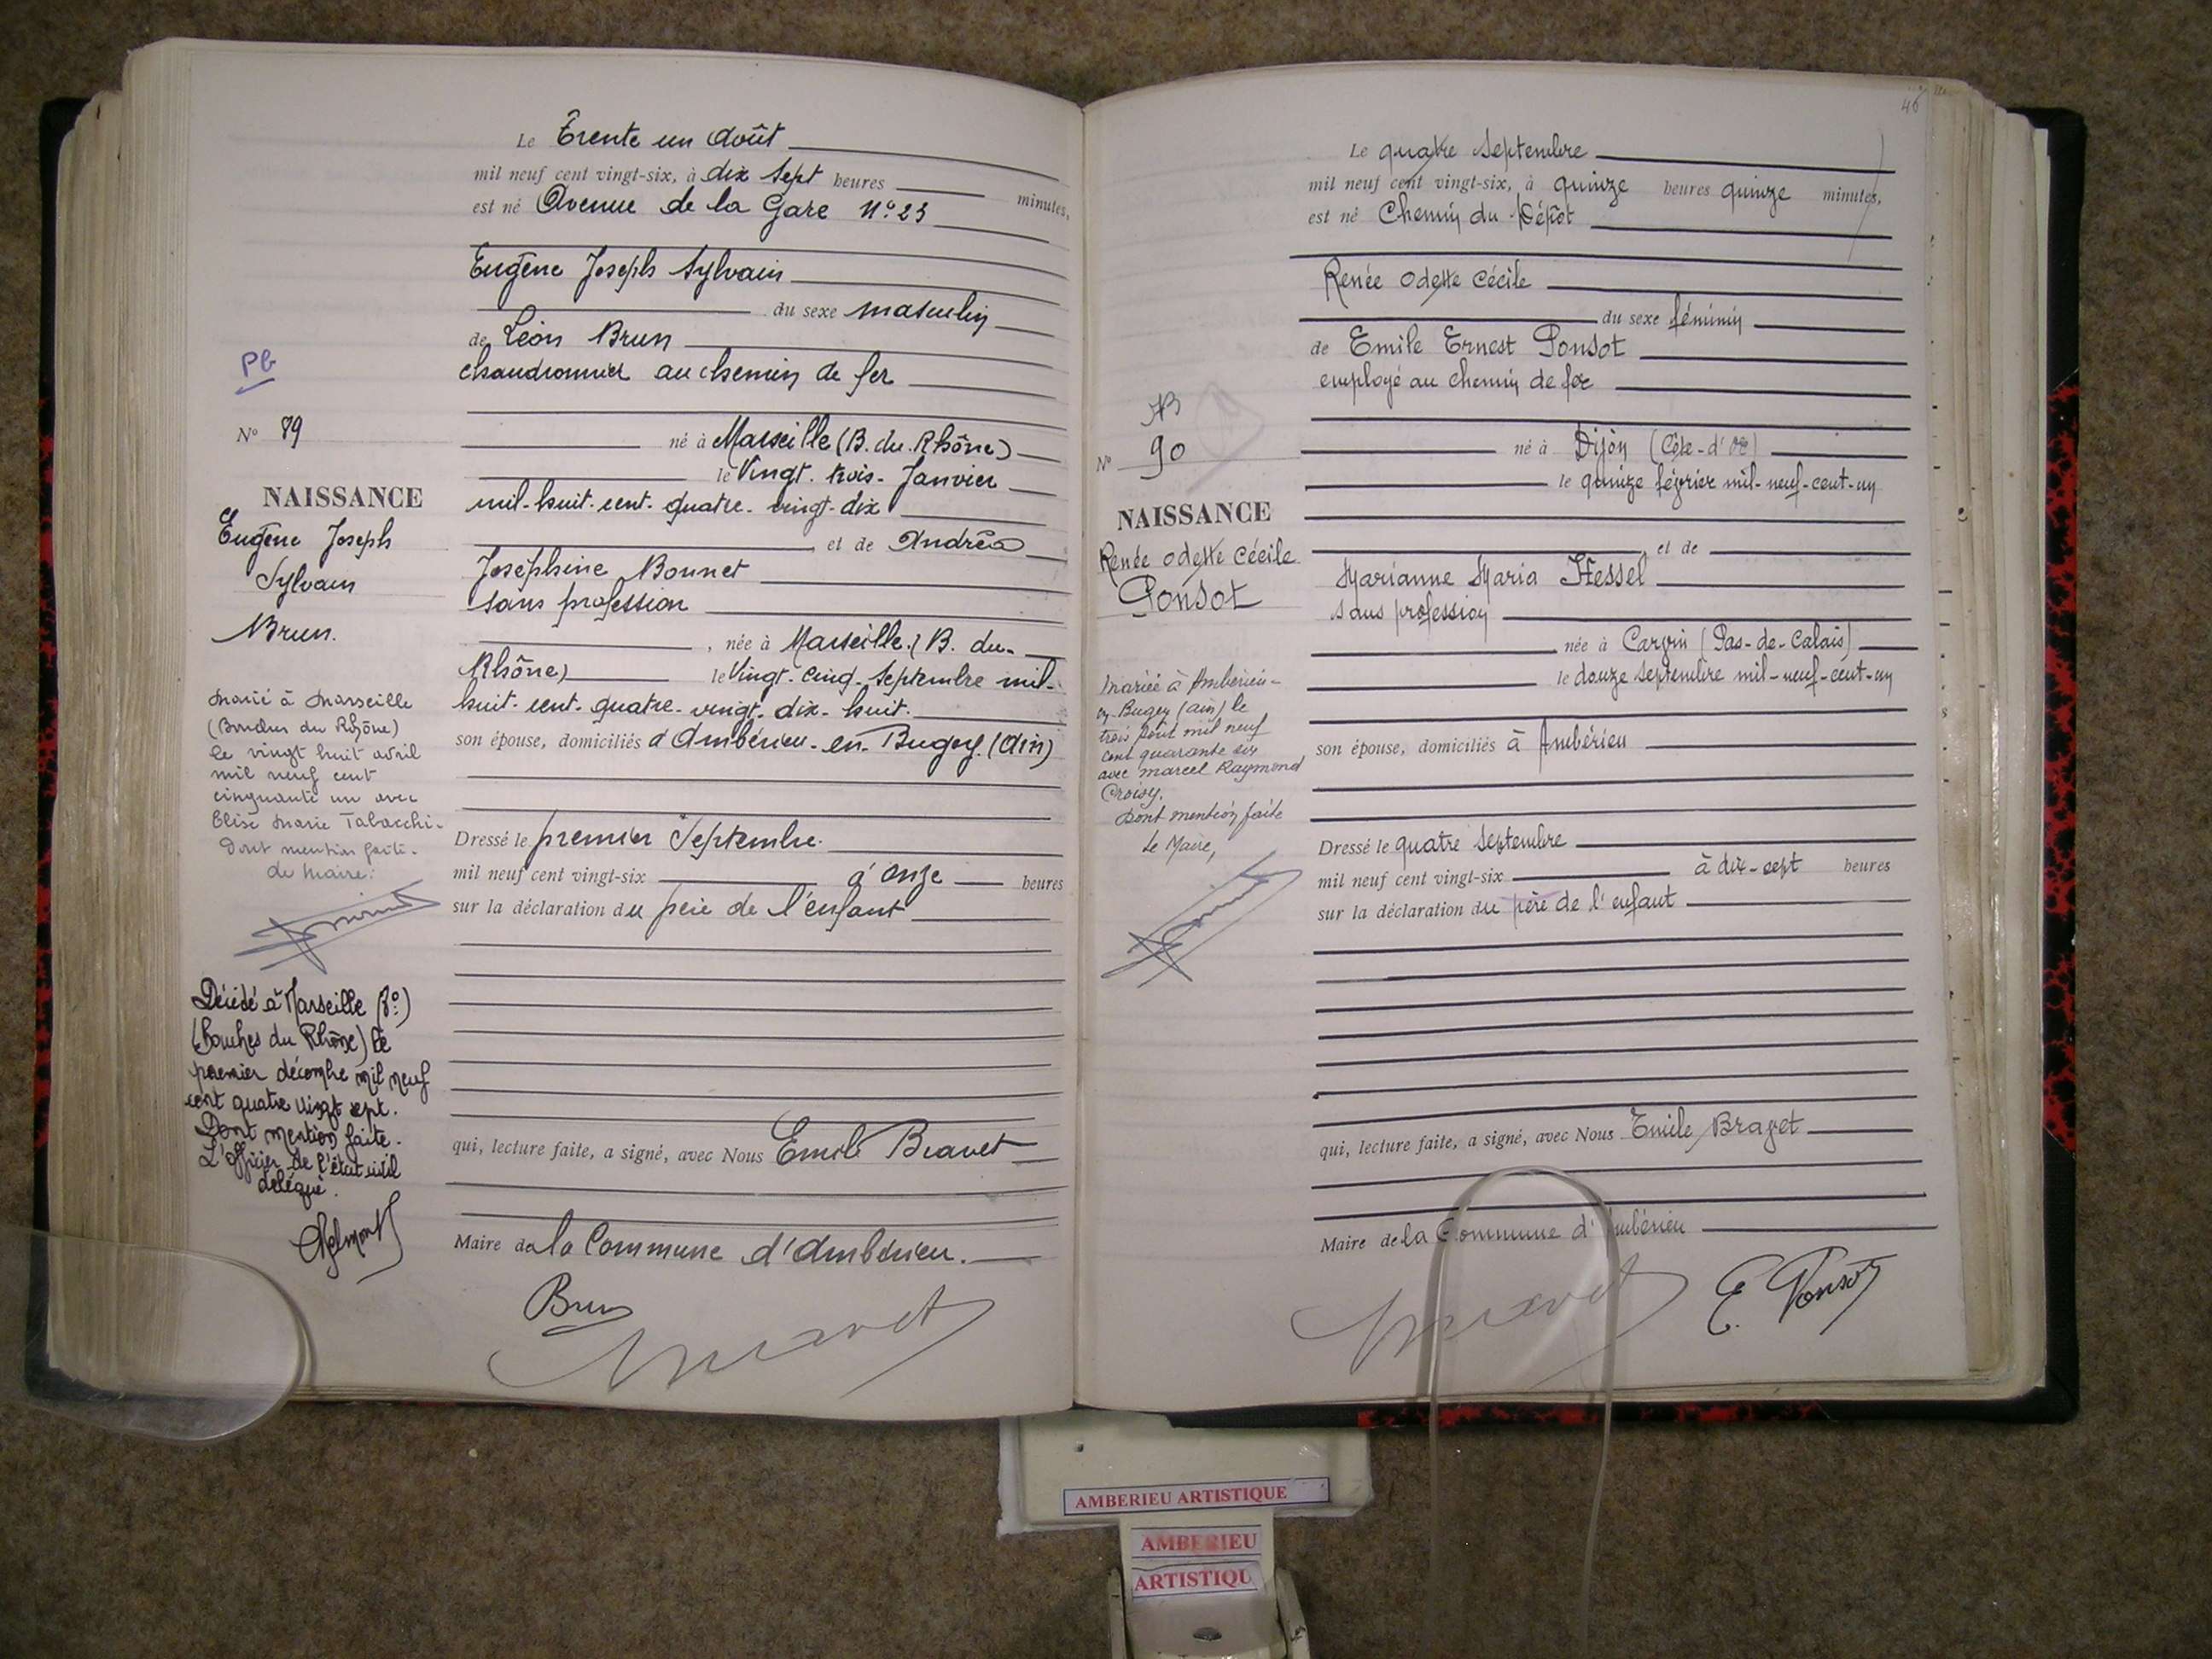 Le Trente un Août
mil neuf cent vingt-six, à dix sept heures minutes,
est né Avenue de la Gare N° 23
Eugène Joseph Sylvain
du sexe masculin
de Léon Brun
chaudronnier au chemin de fer
né à Marseille (B. du. Rhône)
le Vingt. trois. Janvier
mil. huit. cent. quatre. vingt. dix
et de Andréa
Joséphine Bonnet
sans profession
, née à Marseille. (B. du.
Rhône) le Vingt. cinq. Septembre mil.
huit. cent. quatre. vingt. dix. huit.
son épouse, domiciliés à Ambérieu. en. Bugey. (Ain)
Dressé le premier Septembre.
mil neuf cent vingt-six à onze heures
sur la déclaration du père de l'enfant
qui, lecture faite, a signé, avec Nous Emile Bravet
Maire de la Commune d'Ambérieu.
Brun
Bravet
Pb
N° 89
NAISSANCE
Eugène Joseph
Sylvain
Brun.
Marié à Marseille
(Bouches du Rhône)
le vingt huit avril
mil neuf cent
cinquante un avec
Elise Marie Tabacchi.
Dont mention faite.
Le Maire:
Décédé à Marseille (8°)
(Bouches du Rhône) le
premier décembre mil neuf
cent quatre vingt sept.
Dont mention faite.
L'Officier de l'état civil
délégué.
46
Le quatre Septembre
mil neuf cent vingt-six, à quinze heures quinze minutes,
est né Chemin du Dépôt
Renée Odette Cécile
du sexe féminin
de Emile Ernest Ponsot
employé au chemin de fer
né à Dijon (Côte-d'Or)
le quinze février mil-neuf-cent-un
et de
Marianne Maria Hessel
sans profession
née à Carvin (Pas-de-Calais)
le douze septembre mil-neuf-cent-un
son épouse, domiciliés à Ambérieu
Dressé le quatre septembre
mil neuf cent vingt-six à dix-sept heures
sur la déclaration du père de l'enfant
qui, lecture faite, a signé, avec Nous Emile Bravet
Maire de la Commune d'Ambérieu
Bravet
E. Ponsot
N° 90
NAISSANCE
Renée Odette Cécile
Ponsot
Mariée à Ambérieu-
en-Bugey (Ain) le
trois août mil neuf
cent quarante six
avec Marcel Raymond
Croisy.
Dont mention faite
Le Maire,
AMBERIEU ARTISTIQUE
AMBERIEU
ARTISTIQU